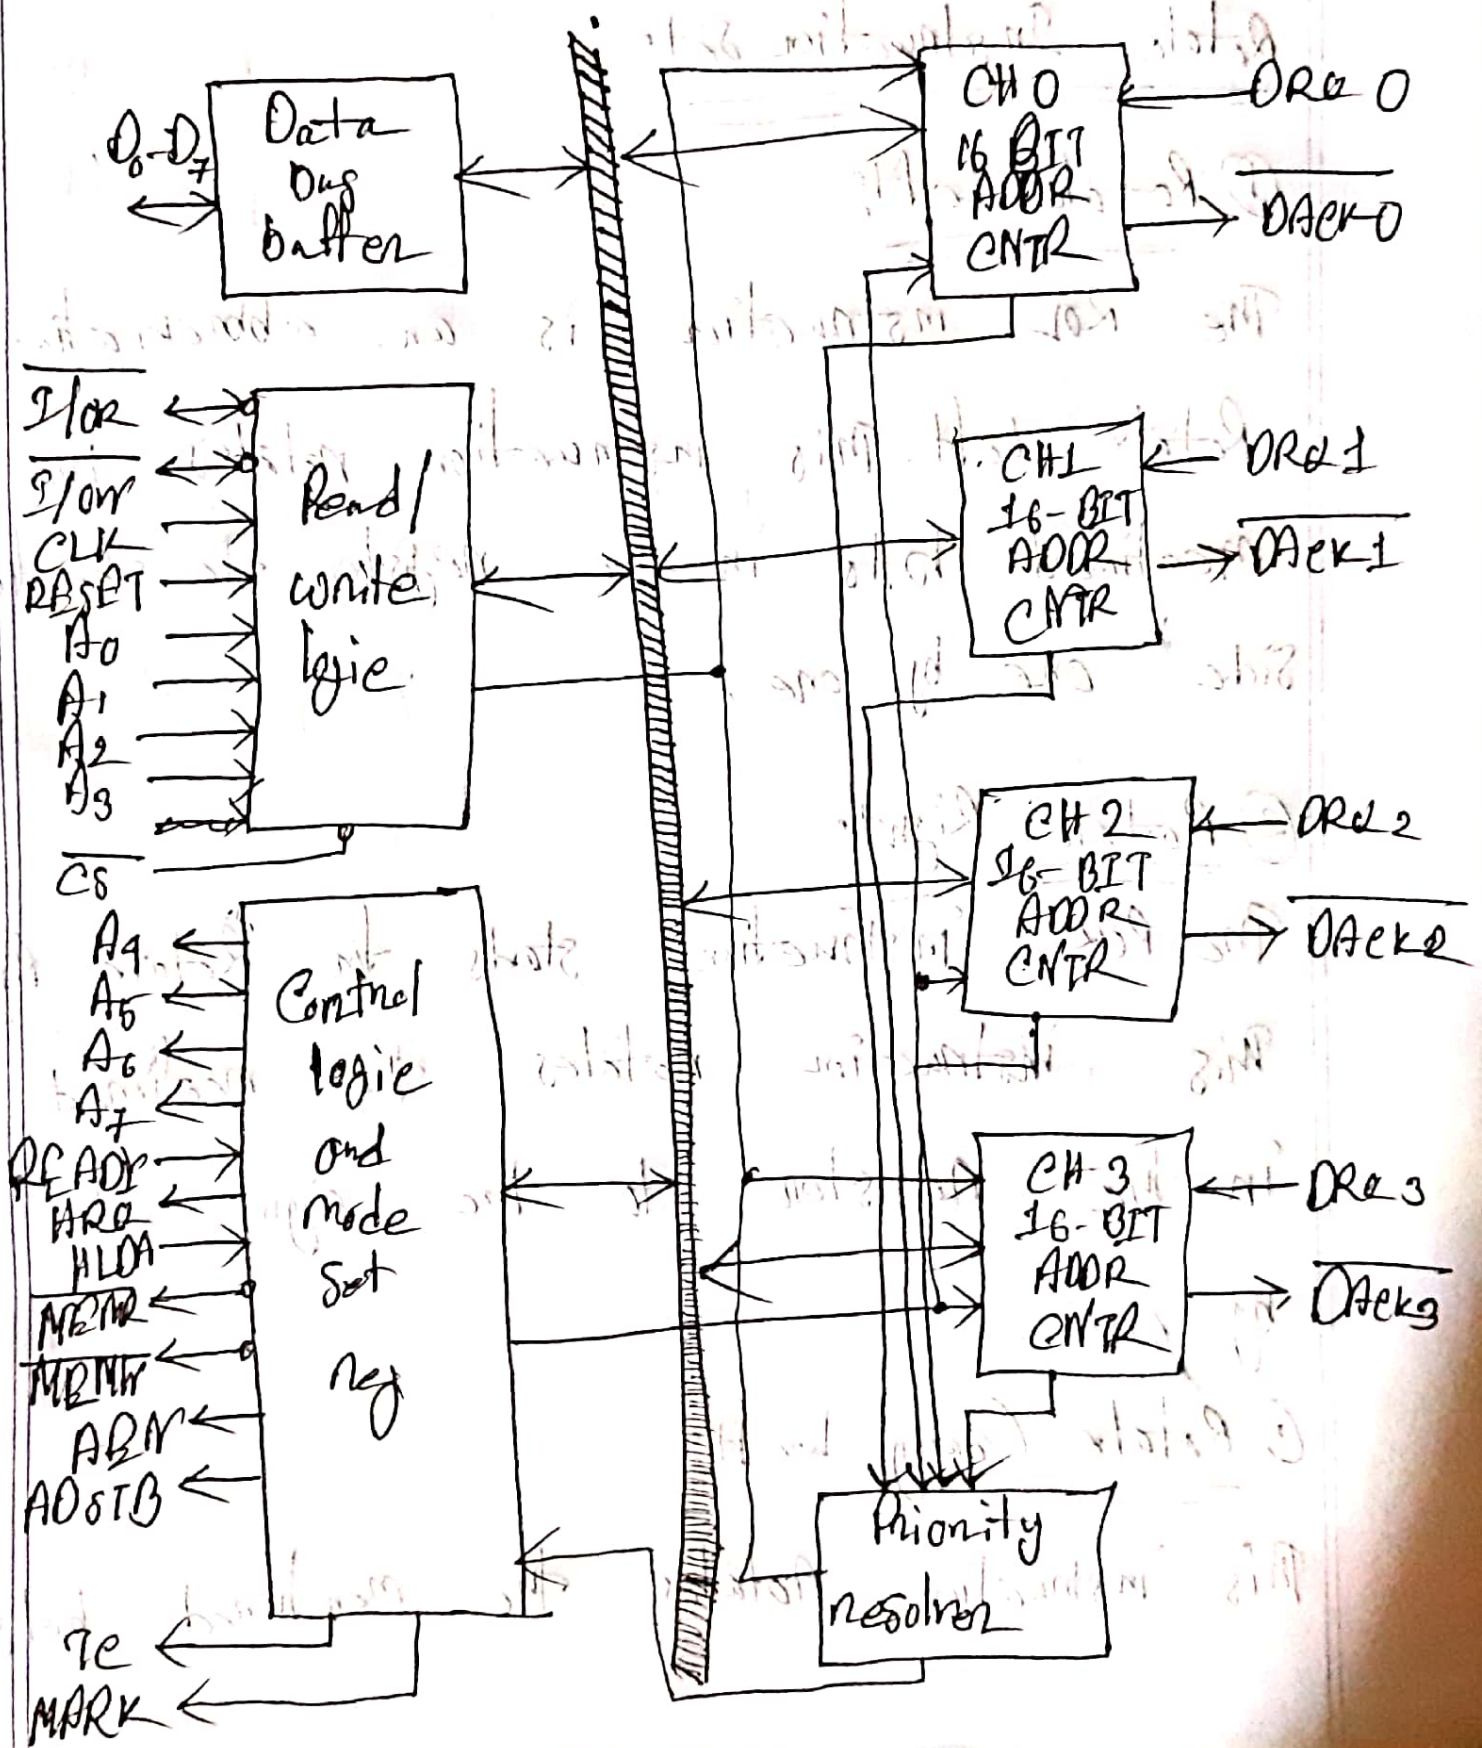 D0-D7
Data
bus
buffer
I/OR
I/OW
CLK
RESET
A0
A1
A2
A3
CS
Read/
write
logic
A4
A5
A6
A7
READY
HRQ
HLDA
MEMR
MEMW
AEN
ADSTB
TC
MARK
Control
logic
and
mode
set
reg
CH 0
16 BIT
ADDR
CNTR
DRQ 0
DACK 0
CH1
16-BIT
ADDR
CNTR
DRQ 1
DACK 1
CH 2
16-BIT
ADDR
CNTR
DRQ 2
DACK 2
CH-3
16-BIT
ADDR
CNTR
DRQ 3
DACK 3
Priority
resolver